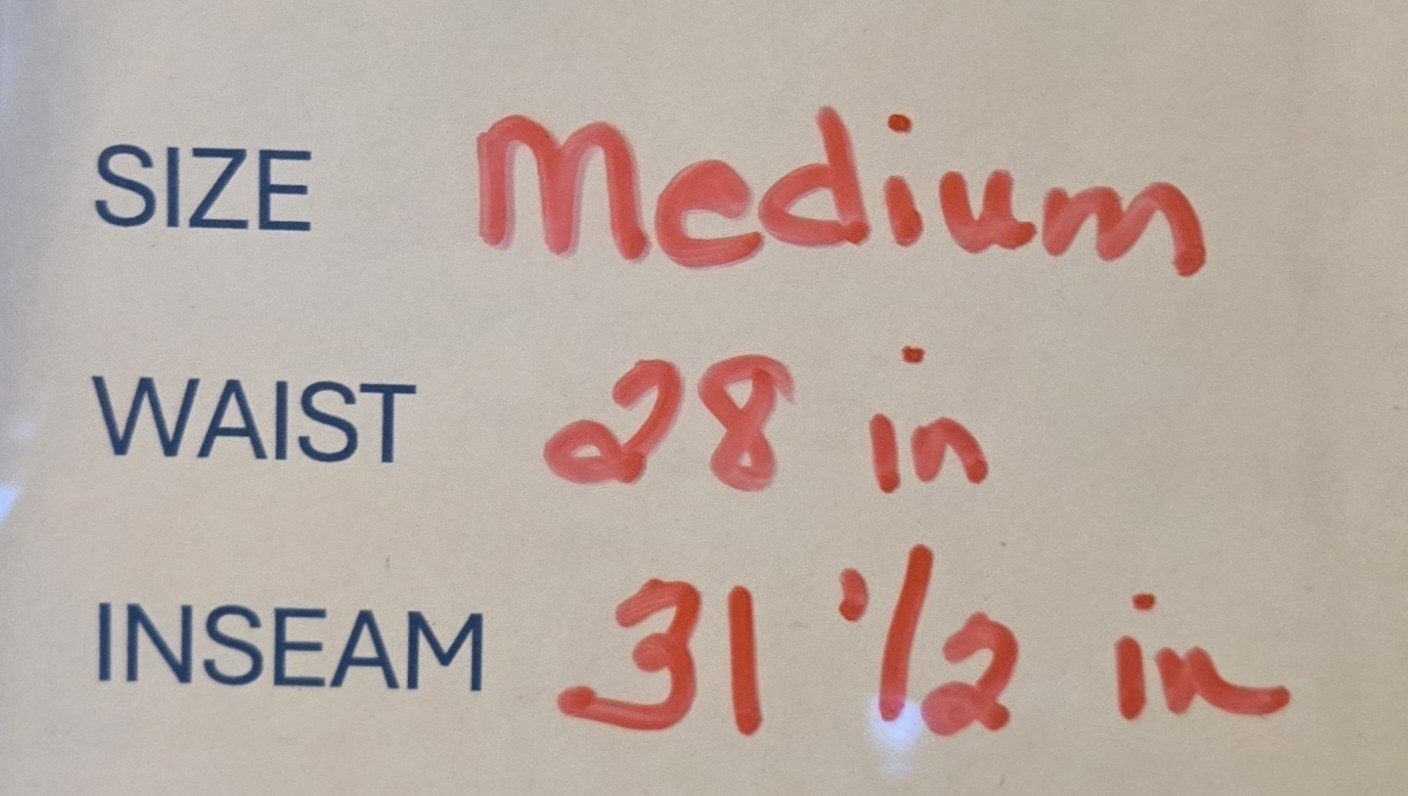 SIZE Medium
WAIST 28 in
INSEAM 31 1/2 in